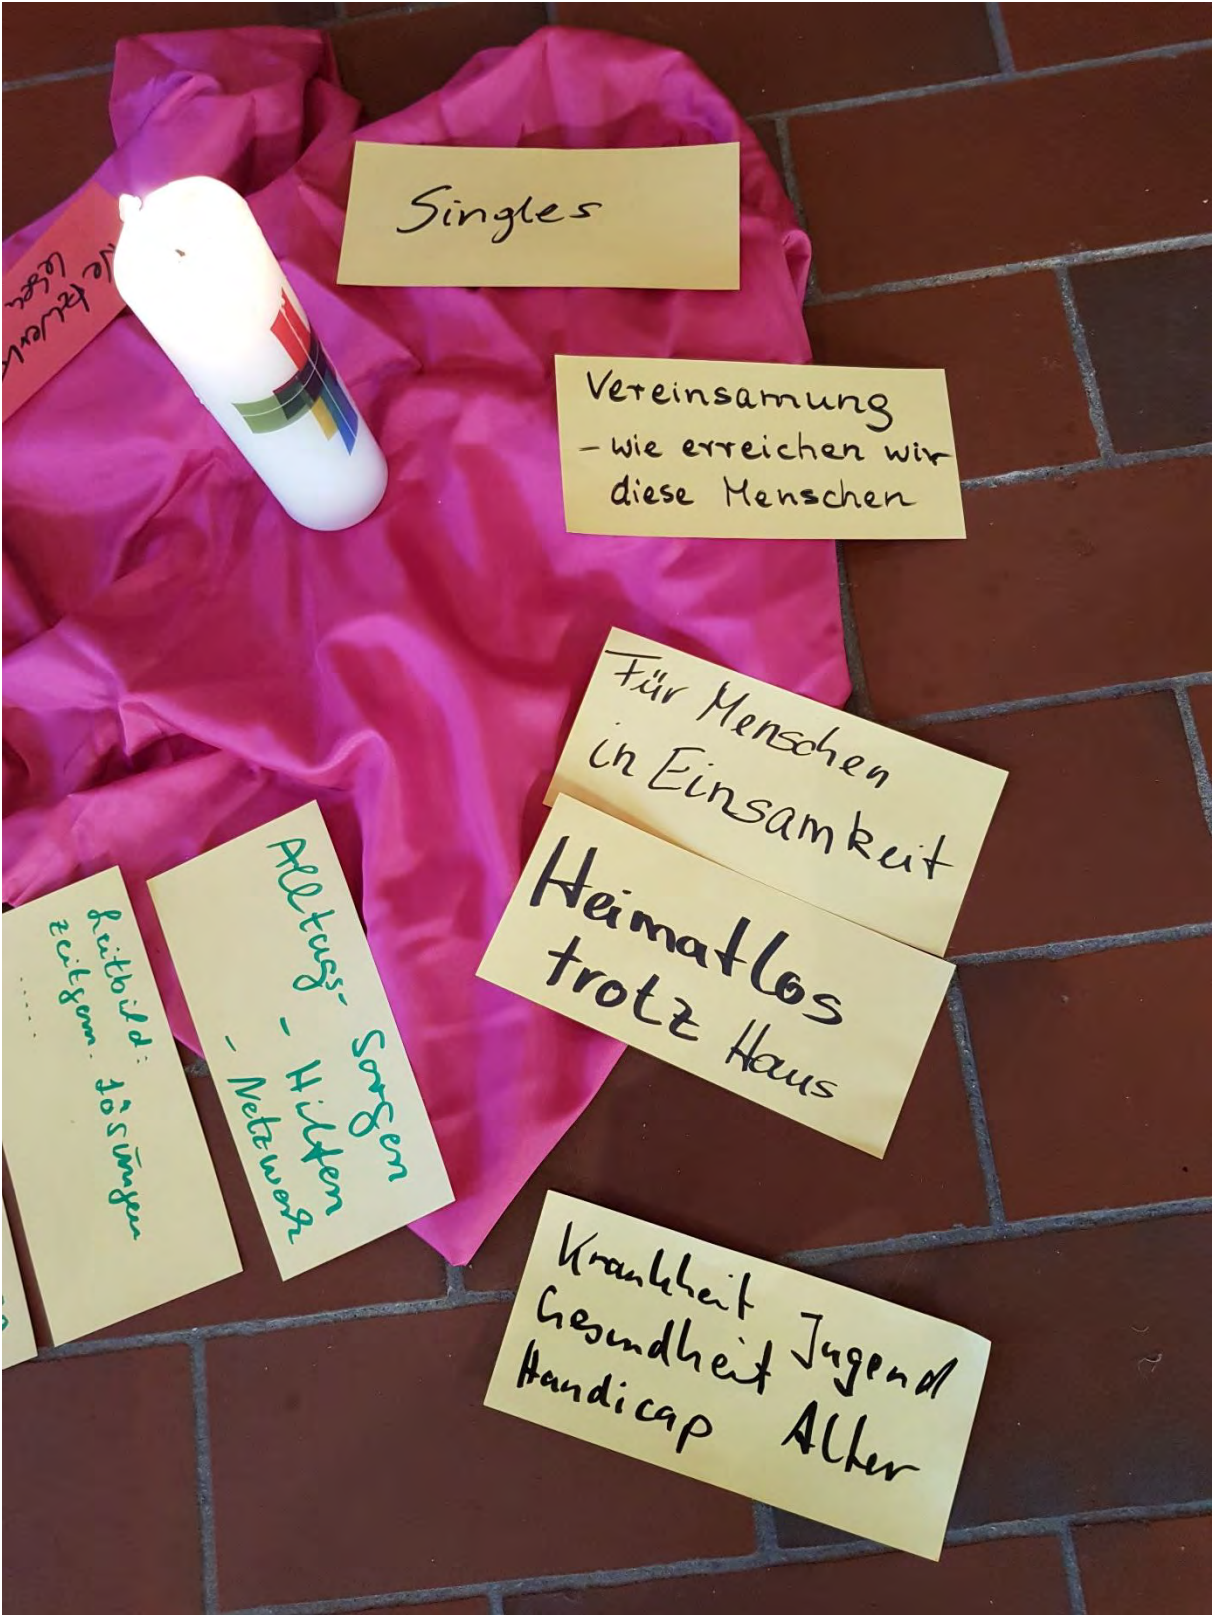 Singles
Vereinsamung
- wie erreichen wir
diese Menschen
Für Menschen
in Einsamkeit
Heimatlos
trotz Haus
Alltags- Sorgen
- Hilfen
- Netzwerk
Leitbild:
zeitgem. Lösungen
.....
Krankheit Jugend
Gesundheit
Handicap Alter